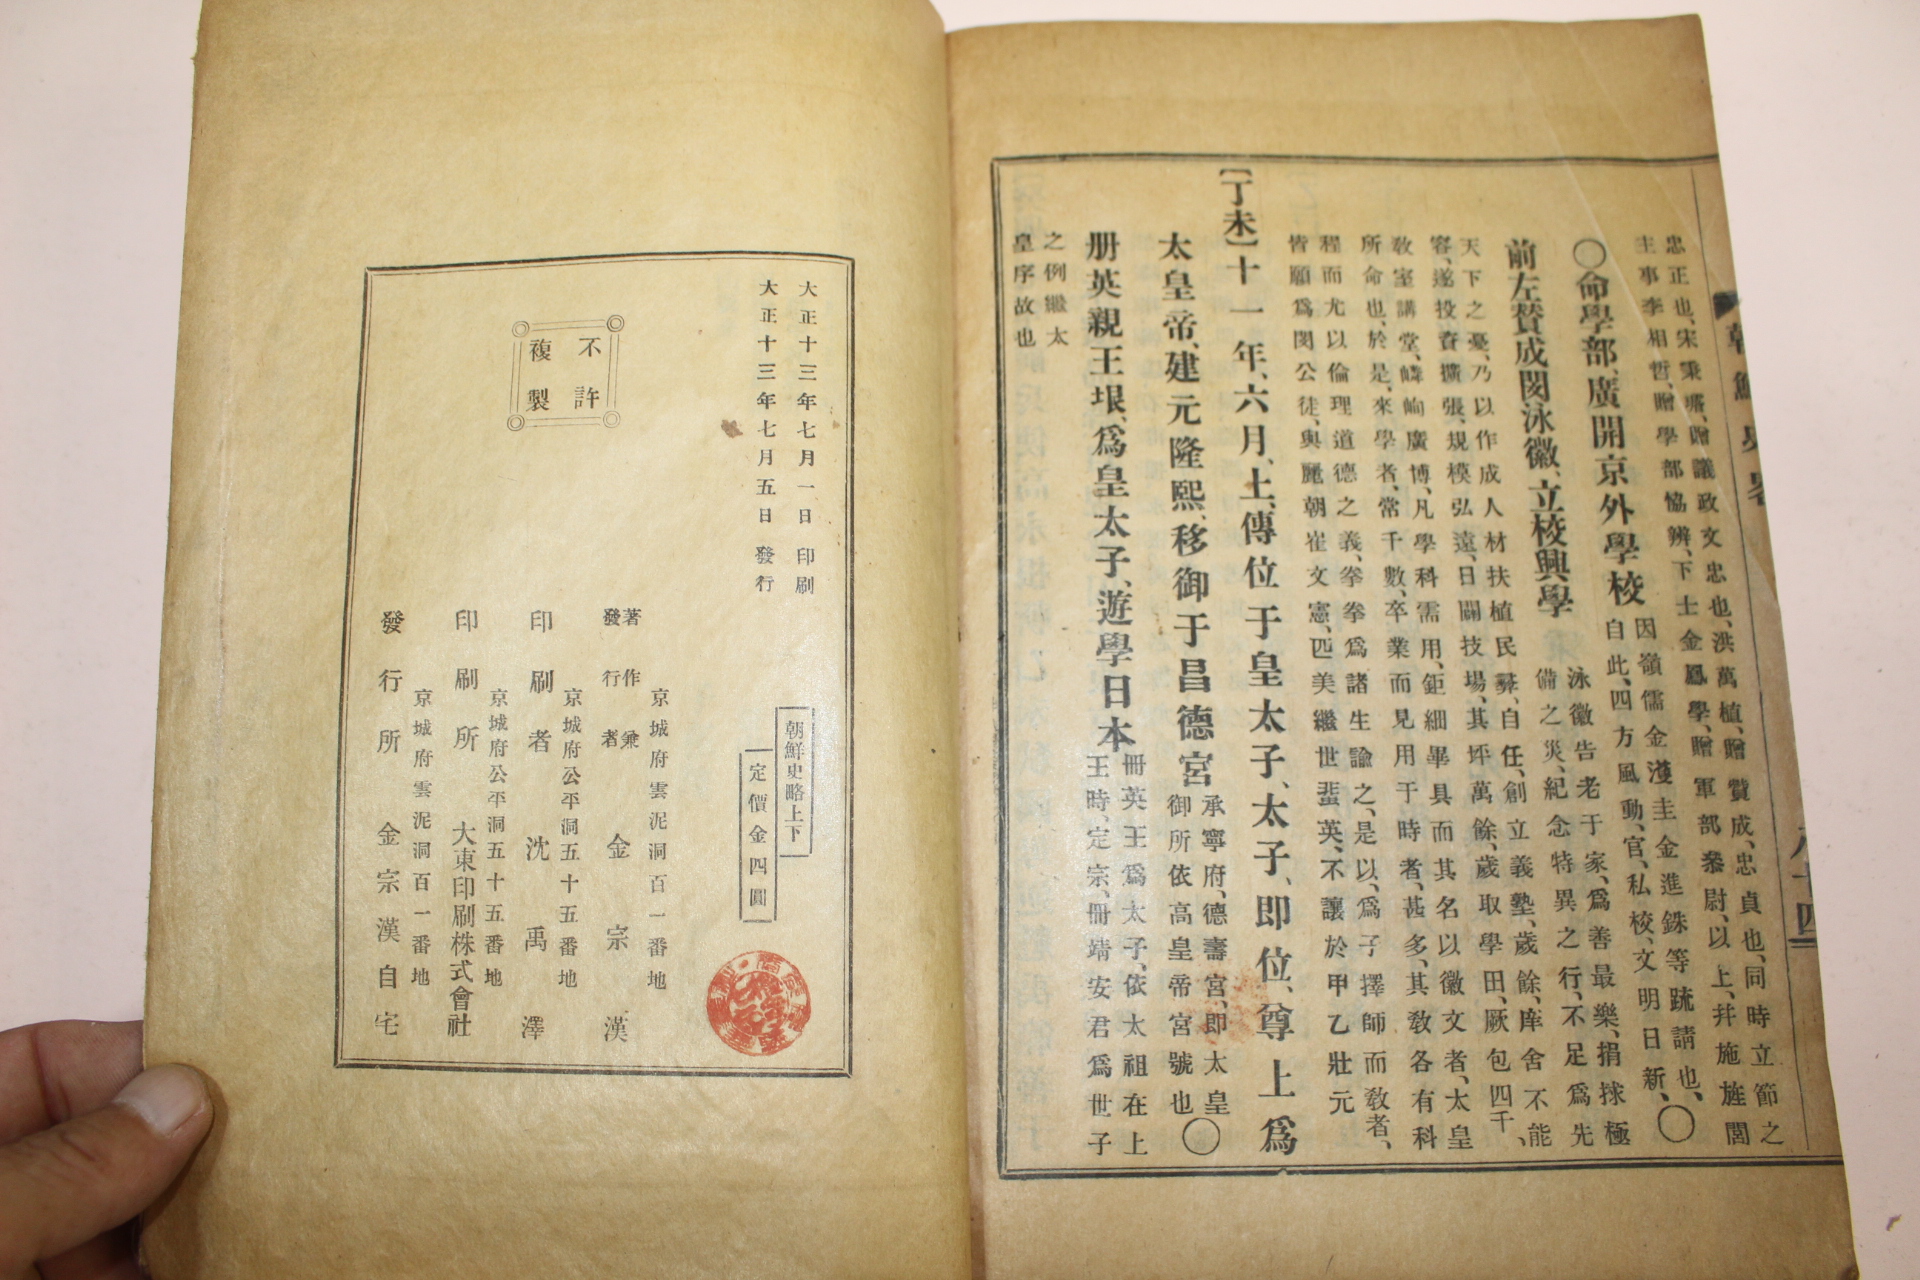 忠正也、宋秉璿、贈議政文忠也、洪萬植、贈贊成、忠貞也、同時立節之
主事李相哲、贈學部協辨、下士金鳳學、贈軍部叅尉、以上、幷施旌閭
〇命學部、廣開京外學校
因嶺儒金濩圭金進銖等䟽請也、
自此、四方風動、官、私校、文明日新、〇
前左贊成閔泳徽、立校興學
泳徽告老于家、爲善最樂、捐捄極
備之災、紀念特異之行、不足爲先
天下之憂、乃以作成人材扶植民彛、自任、創立義塾、歲餘、庠舍不能
容、遂投資擴張、規模弘遠、日闢技場、其坪萬餘、歲取學田、厥包四千、
敎室講堂、嶂峋廣博、凡學科需用、鉅細畢具而其名以徽文者、太皇
所命也、於是、來學者、常千數、卒業而見用于時者、甚多、其敎各有科
程而尤以倫理道德之義、拳拳爲諸生論之、是以、爲子擇師而敎者、
皆願爲閔公徒、與麗朝崔文憲、匹美繼世蜚英、不讓於甲乙壯元
【丁未】十一年、六月、上、傳位于皇太子、太子、即位、尊上爲
太皇帝、建元隆熙、移御于昌德宮
承寧府、德壽宮、即太皇
御所依高皇帝宮號也〇
册英親王垠、爲皇太子、遊學日本
冊英王爲太子、依太祖在上
王時、定宗、冊靖安君爲世子
之例繼太
皇序故也
朝鮮史畧
八十四
大正十三年七月一日印刷
大正十三年七月五日發行
不許
複製
朝鮮史略上下
定價金四圓
京城府雲泥洞百一番地
著作兼
發行者
金宗漢
京城府公平洞五十五番地
印刷者 沈禹澤
京城府公平洞五十五番地
印刷所 大東印刷株式會社
京城府雲泥洞百一番地
發行所 金宗漢自宅